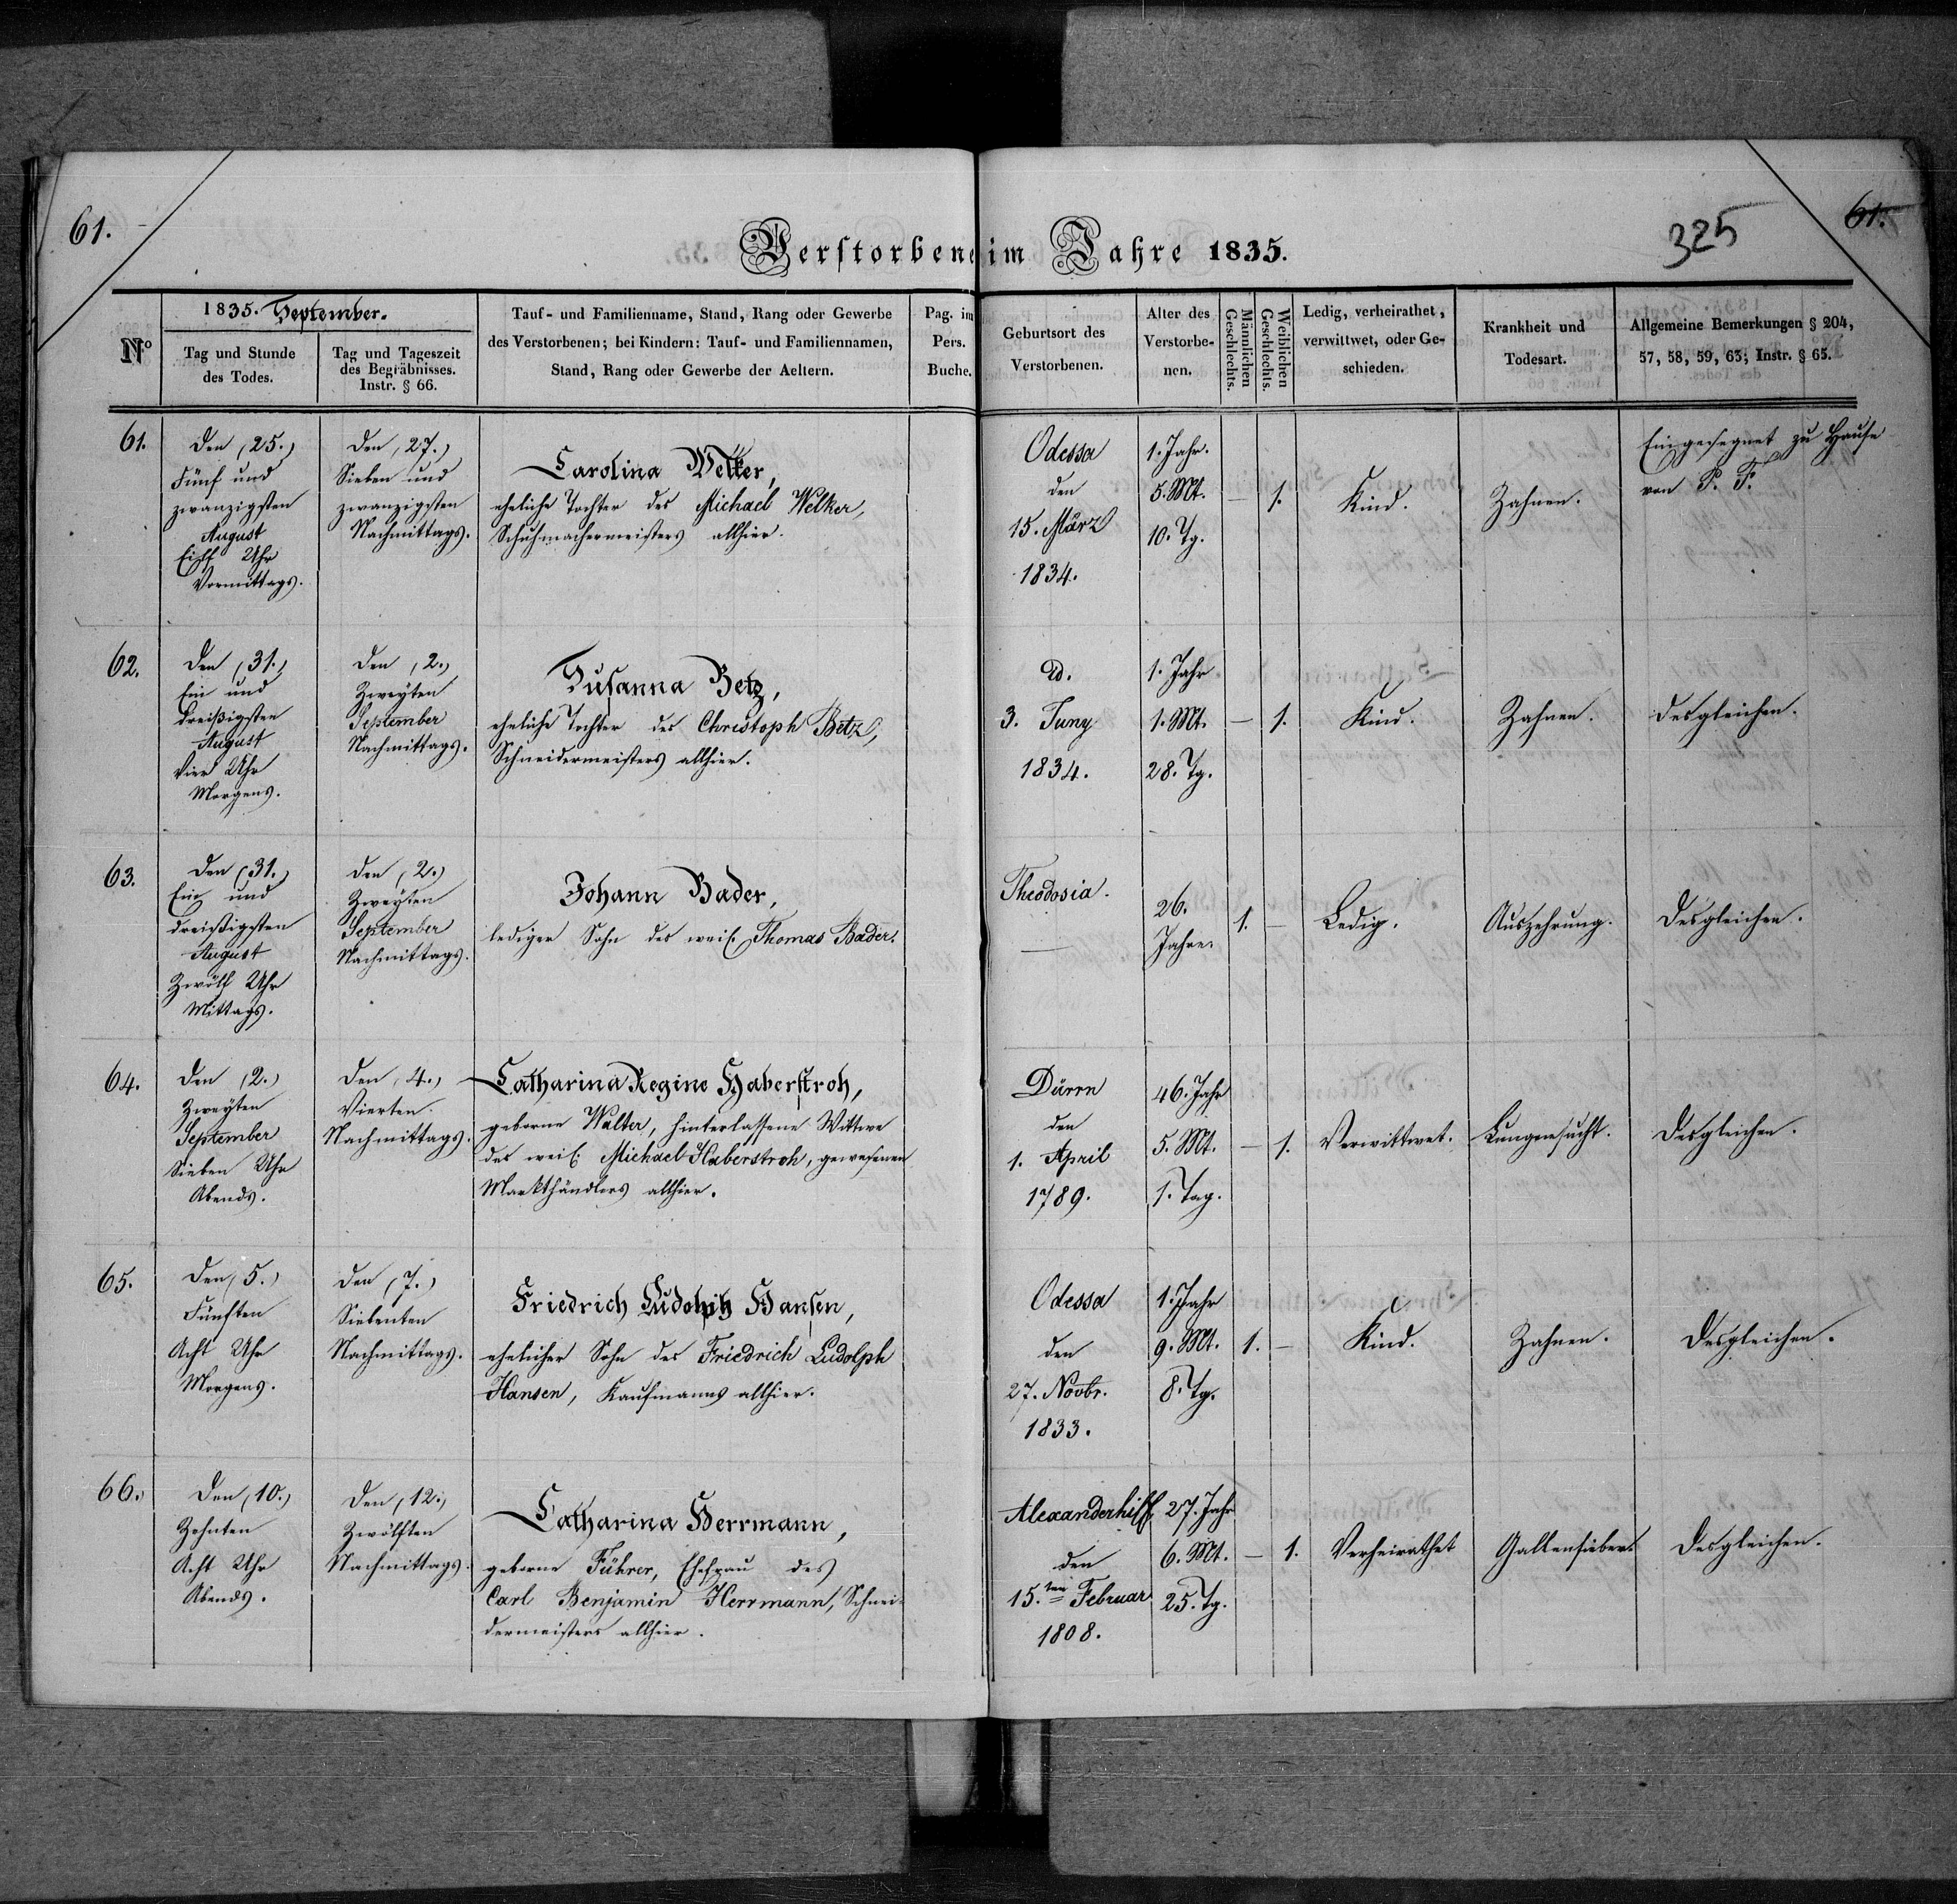 61.
325
61.
Verstorbene im Jahre 1835.
Nº
1835. September.
Tag und Stunde
des Todes.
Tag und Tageszeit
des Begräbnisses.
Instr. § 66.
Tauf- und Familienname, Stand, Rang oder Gewerbe
des Verstorbenen; bei Kindern: Tauf- und Familiennamen,
Stand, Rang oder Gewerbe der Aeltern.
Pag. im
Pers.
Buche.
Geburtsort des
Verstorbenen.
Alter des
Verstorbe-
nen.
Männlichen
Geschlechts.
Weiblichen
Geschlechts.
Ledig, verheirathet,
verwittwet, oder Ge-
schieden.
Krankheit und
Todesart.
Allgemeine Bemerkungen § 204,
57, 58, 59, 63; Instr. § 65.
61.
Den (25.)
Fünf und
zwanzigsten
August
Eilf Uhr
Vormittags.
Den (27.)
Sieben und
zwanzigsten
Nachmittags.
Carolina Welker,
eheliche Tochter des Michael Welker,
Schuhmachermeisters allhier.
Odessa
den
15. März
1834.
1. Jahr.
5. Mt.
10. Tg.
—
1.
Kind.
Zahnen.
Eingesegnet zu Hause
von P. F.
62.
Den (31.)
Ein und
dreißigsten
August
Vier Uhr
Morgens.
Den (2.)
Zweyten
September
Nachmittags.
Susanna Betz,
eheliche Tochter des Christoph Betz,
Schneidermeisters allhier.
3. Juny
1834.
1. Jahr
1. Mt.
28. Tg.
—
1.
Kind.
Zahnen.
Desgleichen.
63.
Den (31.)
Ein und
dreißigsten
August
Zwölf Uhr
Mittags.
Den (2.)
Zweyten
September
Nachmittags.
Johann Bader,
lediger Sohn des weil. Thomas Bader.
Theodosia.
—
26.
Jahre.
1.
—
Ledig.
Auszehrung.
Desgleichen.
64.
Den (2.)
Zweyten
September
Sieben Uhr
Abends.
Den (4.)
Vierten
Nachmittags.
Catharina Regine Haberstroh,
geborne Walter, hinterlassene Wittwe
des weil. Michael Haberstroh, gewesenen
Markthändlers allhier.
Dürrn
den
1. April
1789.
46. Jahr
5. Mt.
1. Tag.
—
1.
Verwittwet.
Lungensucht.
Desgleichen.
65.
Den (5.)
Fünften
Acht Uhr
Morgens.
Den (7.)
Siebenten
Nachmittags.
Friedrich Ludolph Hansen,
ehelicher Sohn des Friedrich Ludolph
Hansen, Kaufmanns allhier.
Odessa
den
27. Novbr.
1833.
1. Jahr
9. Mt.
8. Tg.
1.
—
Kind.
Zahnen.
Desgleichen.
66.
Den (10.)
Zehnten
Acht Uhr
Abends.
Den (12.)
Zwölften
Nachmittags.
Catharina Herrmann,
geborne Führer, Ehefrau des
Carl Benjamin Herrmann, Schnei-
dermeisters allhier.
Alexanderhilf
den
15.ten Februar
1808.
27. Jahr
6. Mt.
25. Tg.
—
1.
Verheirathet
Gallenfieber
Desgleichen.